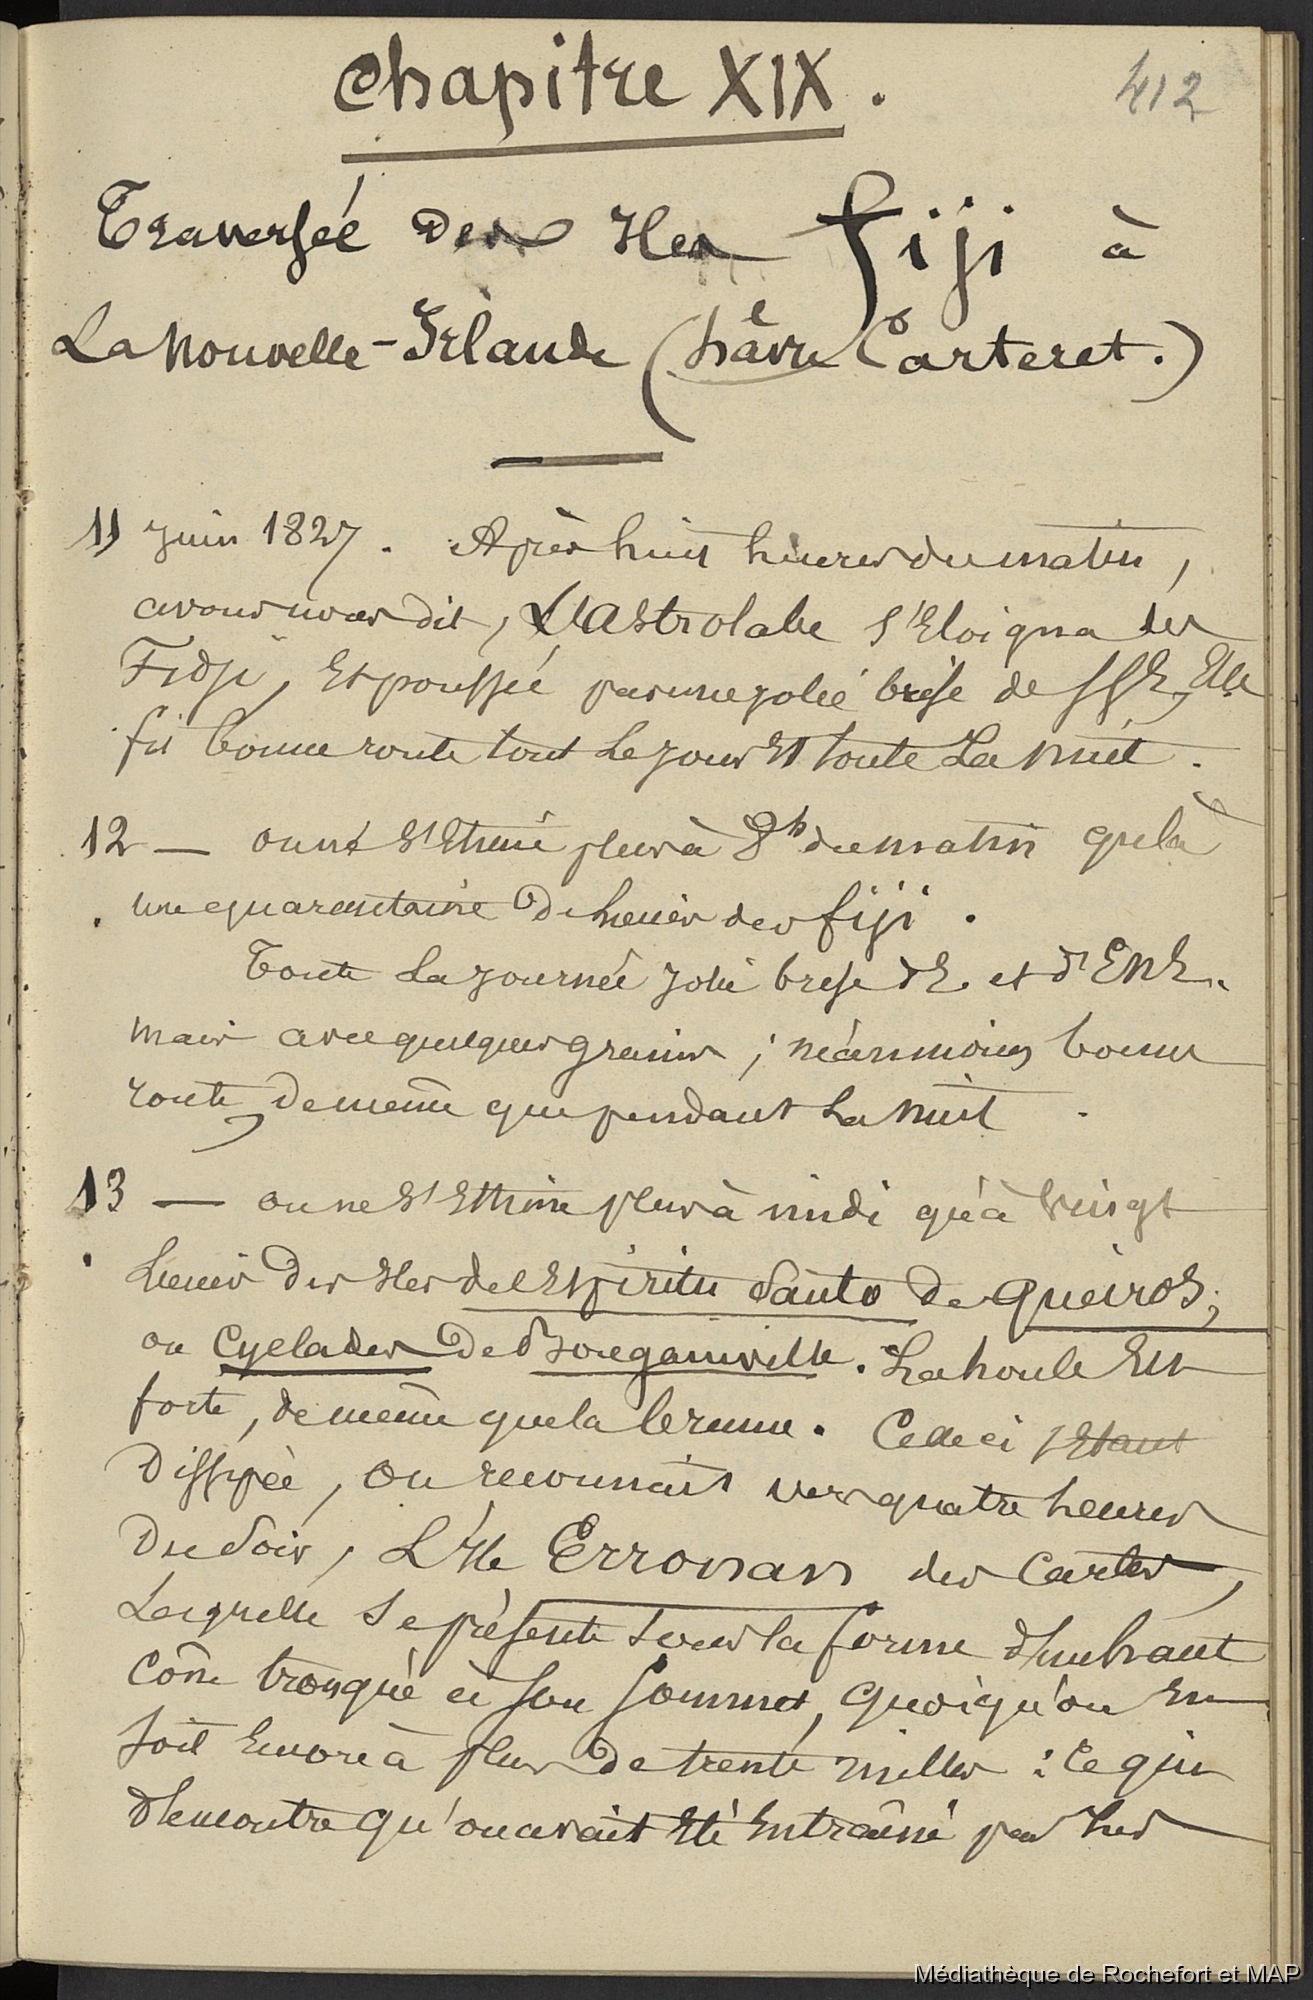 Chapitre XIX.
412
Traversée des Iles fiji à
La Nouvelle-Irlande (hâvre Carteret.)
11 Juin 1827. Après huit heures du matin,
avons nous dit, L'Astrolabe s'Eloigna des
Fidji, Et poussée par une jolie brise de SSE, Elle
fit bonne route tout Le jour Et toute La nuit.
12 — on ne s'Estime plus à 8h du matin qu'à
une quarantaine de lieues des fiji.
Toute La journée jolie brise d'E. et d'ENE.
mais avec quelques grains ; néanmoins bonne
route, de même que pendant La nuit.
13 — on ne s'Estime plus à midi qu'à vingt
lieues des Iles del Espiritu Santo de Queiros,
ou Cyclades de Bougainville. La houle Est
forte, de même que la brume. Celle ci s'Etant
Dissipée, on reconnait vers quatre heures
Du Soir, L'Ile Erronan des Cartes,
Laquelle se présente sous la forme d'un haut
Cône tronqué à son sommet, quoiqu'on En
soit Encore à plus de trente milles : Ce qui
démontre qu'on avait Eté Entraîné par Les
Médiathèque de Rochefort et MAP